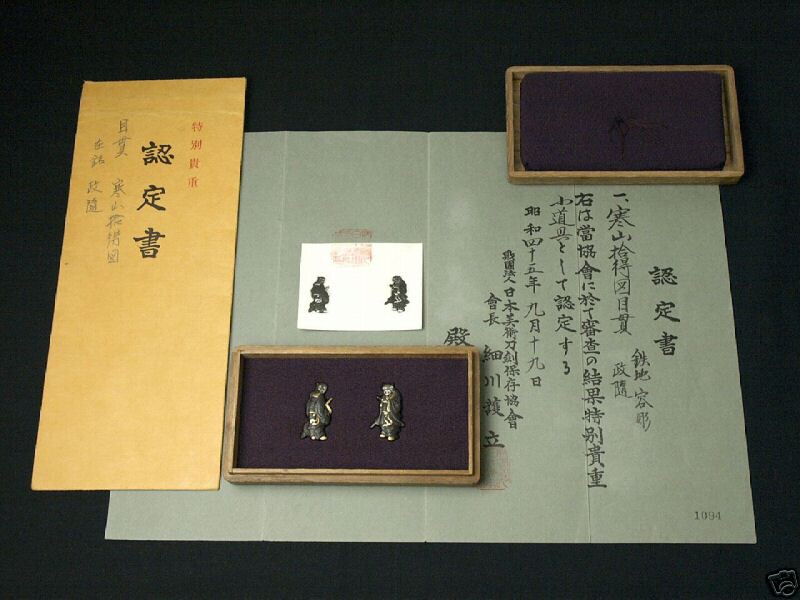 特別貴重
認定書
目貫 寒山拾得図
在銘 政随
認定書
一、寒山拾得図目貫
鉄地容彫
政随
右は當協會に於て審査の結果特別貴重
小道具として認定する
昭和四十五年九月十九日
財團法人日本美術刀剣保存協會
會長 細川護立
殿
1094